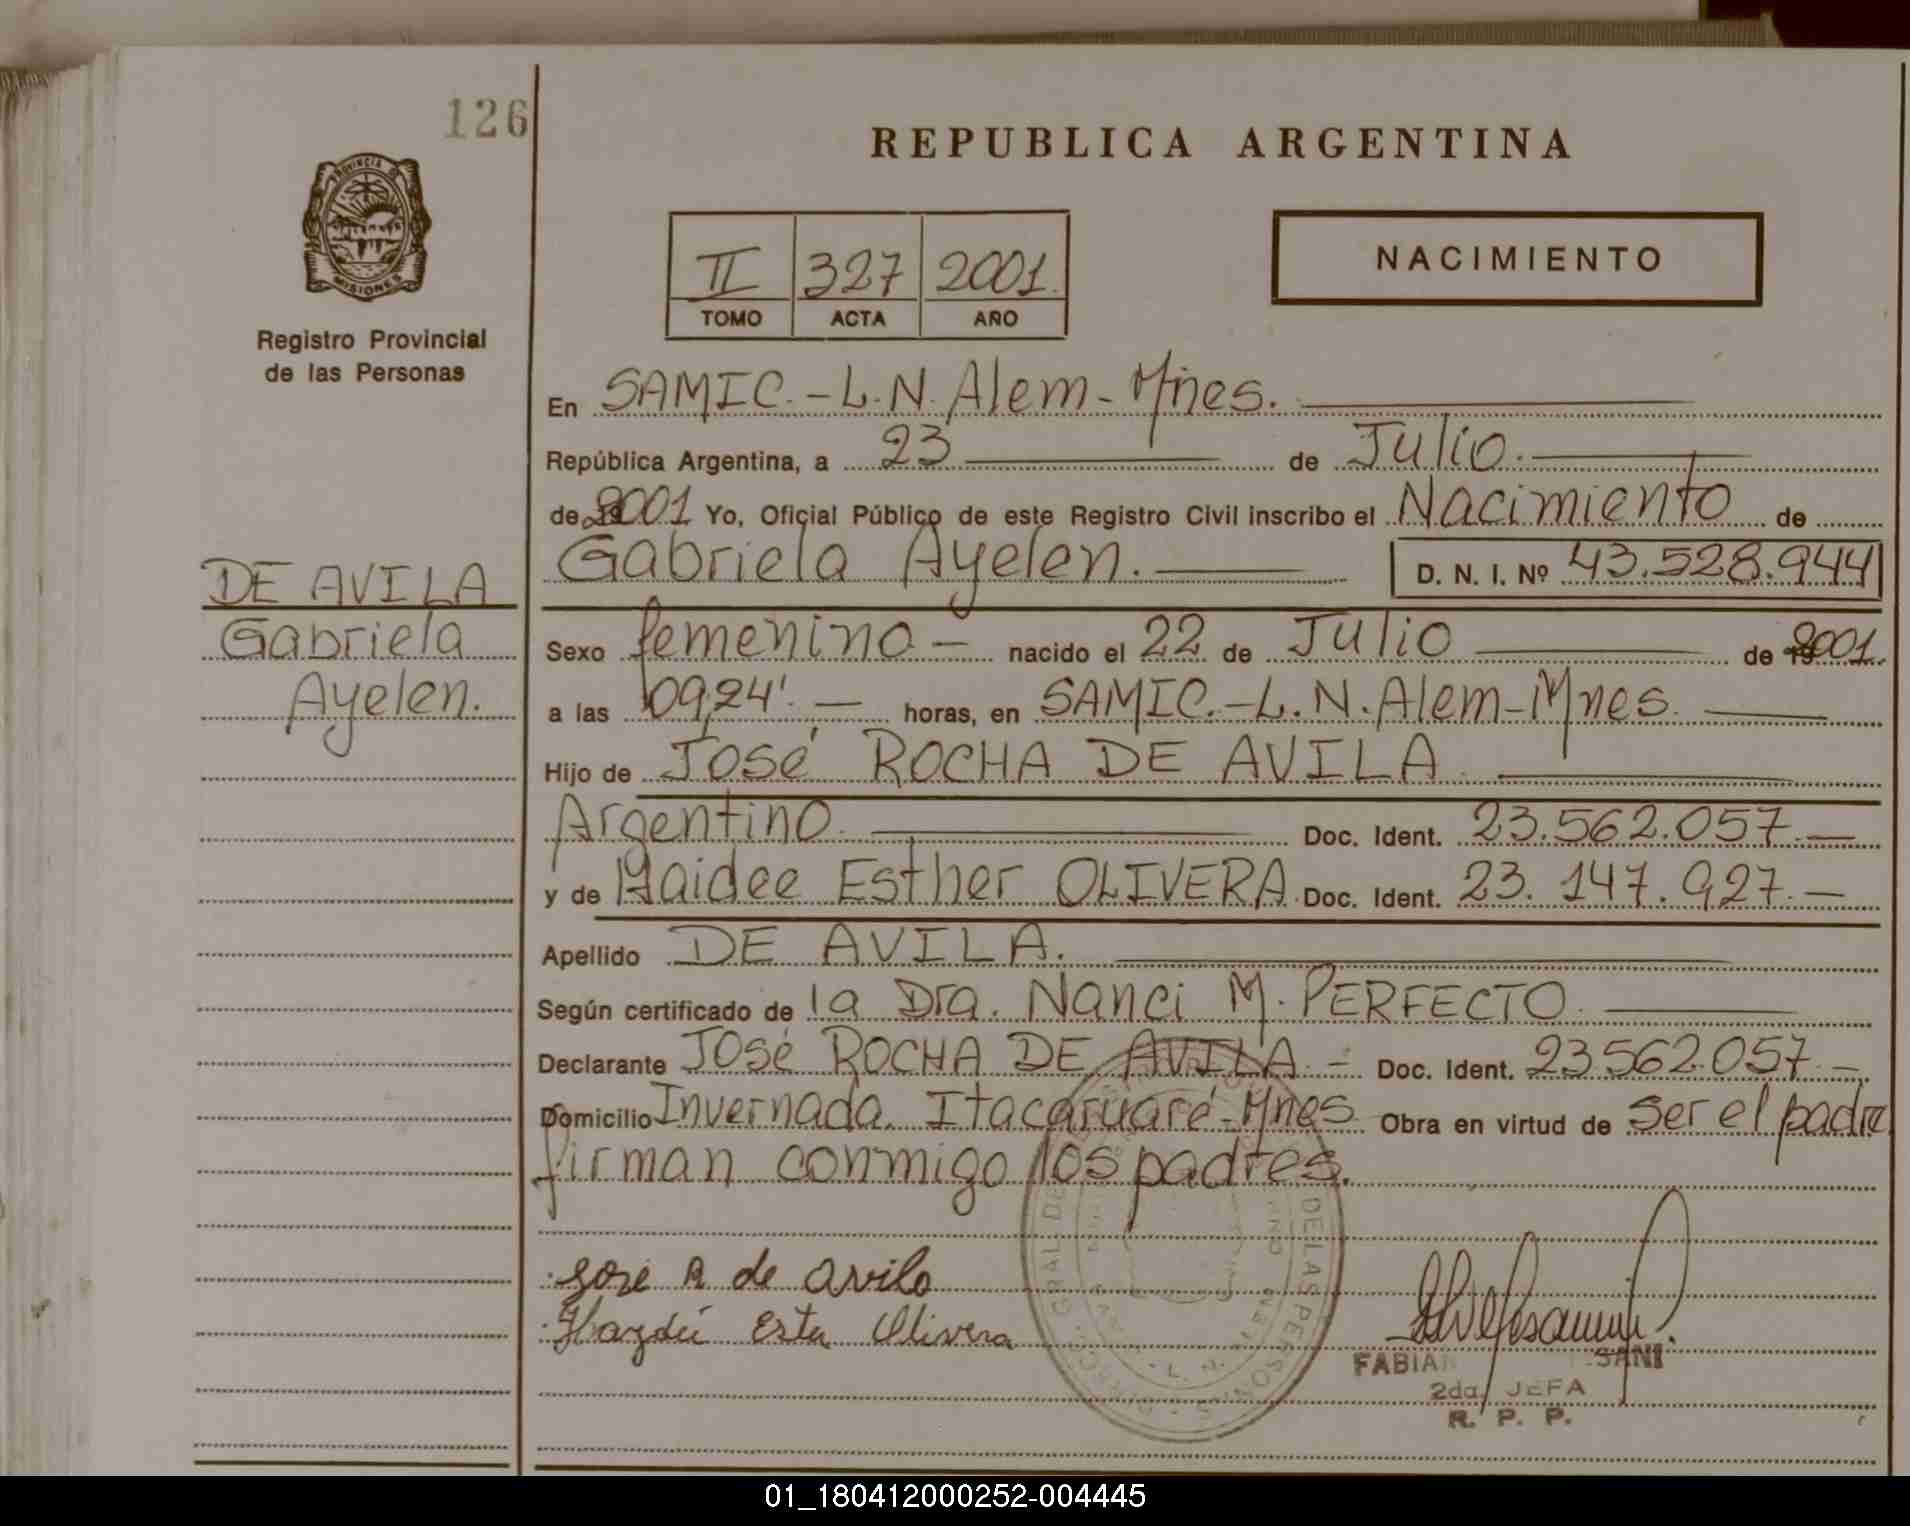 126
REPUBLICA ARGENTINA
PROVINCIA DE
MISIONES
Registro Provincial
de las Personas
II 327 2001.
TOMO ACTA AÑO
NACIMIENTO
En SAMIC.-L.N.Alem-Mnes.
República Argentina, a 23 de Julio.
de 2001 Yo, Oficial Público de este Registro Civil inscribo el Nacimiento de
Gabriela Ayelen. D. N. I. Nº 43.528.944
DE AVILA
Gabriela
Ayelen.
Sexo femenino - nacido el 22 de Julio de 2001.
a las 09,24'.- horas, en SAMIC.-L.N.Alem-Mnes.
Hijo de José ROCHA DE AVILA
Argentino. Doc. Ident. 23.562.057.-
y de Haidee Esther OLIVERA. Doc. Ident. 23.147.927.-
Apellido DE AVILA.
Según certificado de la Dra. Nanci M. PERFECTO.
Declarante José ROCHA DE AVILA.- Doc. Ident. 23.562.057.-
Domicilio Invernada. Itacaruaré-Mnes. Obra en virtud de ser el padre
firman conmigo los padres.
Jose R de avila
Olivera
DE LAS PERSONAS
L. N.
FABIAN SANI
2da. JEFA
R. P. P.
01_180412000252-004445